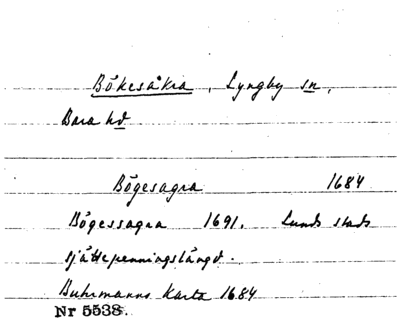 Bökesåkra, Lyngby sn,
Bara hd
Bögesagra 1684
Bögessagra 1691. Lunds stads
sjättepenningslängd.
Buhrmanns Karta 1684
Nr 5538.